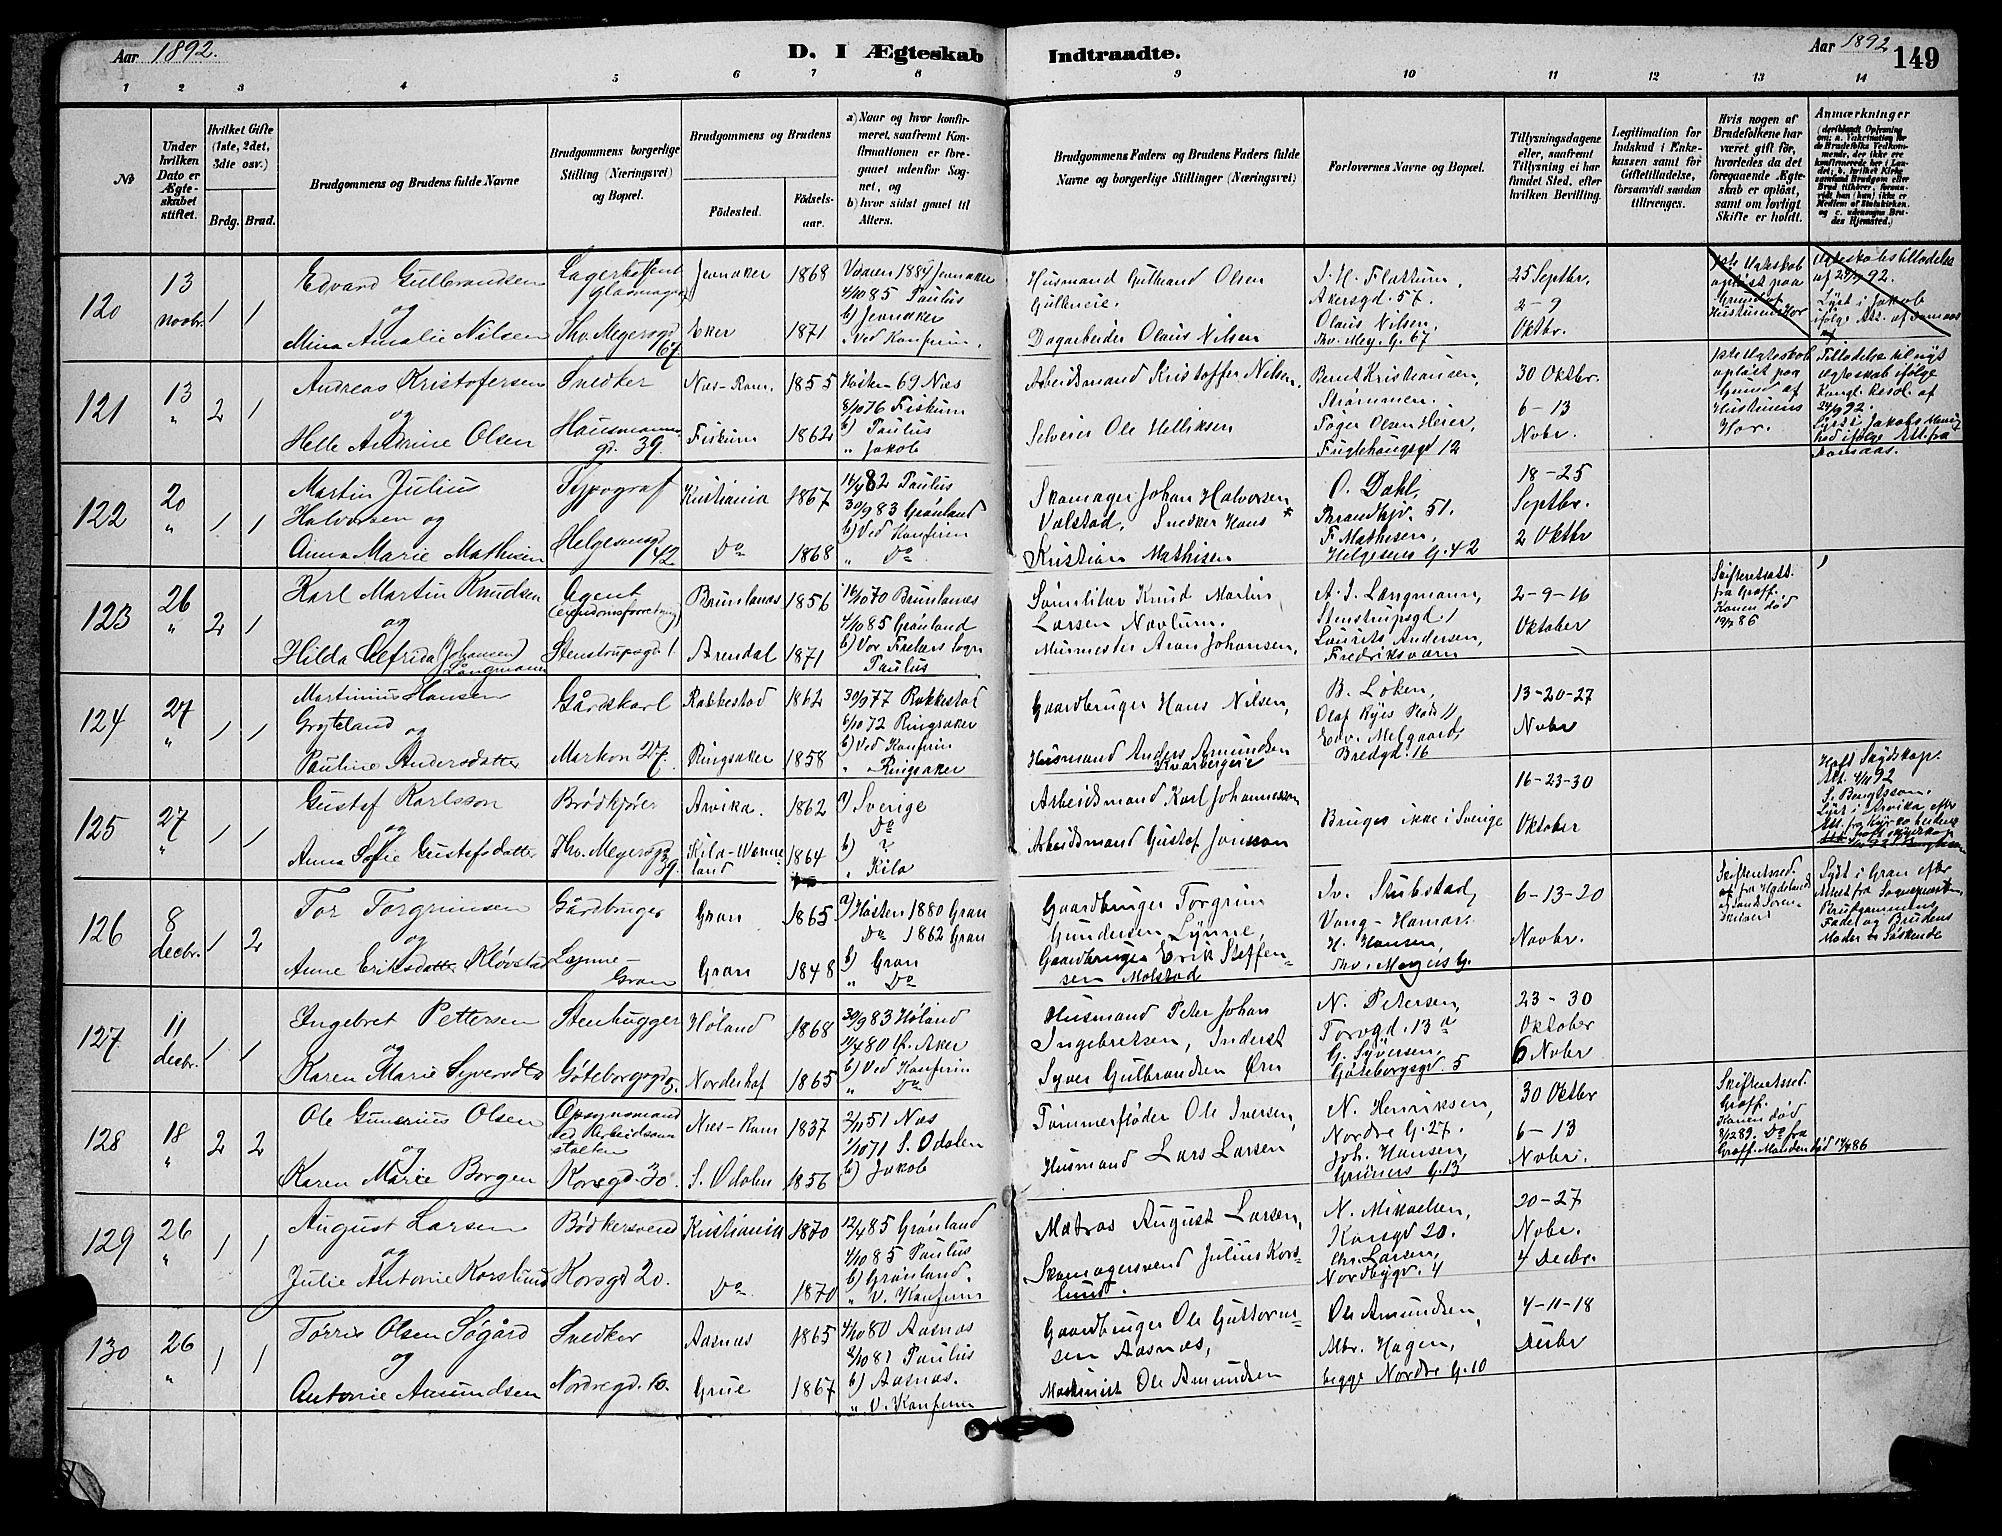 Aar 1892.
D. I Ægteskab Indtraadte.
Aar 1892
149
1 2 3 4 5 6 7 8 9 10 11 12 13 14
No
Under hvilken Dato er Ægteskabet stiftet.
Hvilket Gifte (1ste, 2det, 3die osv.)
Brdg. Brud.
Brudgommens og Brudens fulde Navne
Brudgommens borgerlige Stilling (Næringsvei) og Bopæl.
Brudgommens og Brudens
Fødested. Fødselsaar.
a) Naar og hvor konfirmeret, saafremt Konfirmationen er foregaaet udenfor Sognet, og
b) hvor sidst gaaet til Alters.
Brudgommens Faders og Brudens Faders fulde Navne og borgerlige Stillinger (Næringsvei)
Forlovernes Navne og Bopæl.
Tillysningsdagene eller, saafremt Tillysning ei har fundet Sted, efter hvilken Bevilling.
Legitimation for Indskud i Enkekassen samt for Giftetilladelse, forsaavidt saadan tiltrænges.
Hvis nogen af Brudefolkene har været gift før, hvorledes da det foregaaende Ægteskab er opløst, samt om lovligt Skifte er holdt.
Anmærkninger
120
13 novbr.
1 1
Edvard Gulbrandsen
og
Mina Amalie Nilsen
Lagerbetjent
Thv. Meyersgd 67
Jevnaker 1868
Eker 1871
Vaaren 1884 Jevnaker
4/10 85 Paulus
b) Jevnaker
" Ved Konfirm.
Husmand Gulbrand Olsen
Dagarbeider Olaus Nilsen
Akersgd. 57.
Olaus Nilsen.
Thv. Mey. G. 67
25 Septbr.
2-9
Oktbr.
Ægteskabstilladelse
Lyst i Jakob
121
13 "
2 1
Andreas Kristofersen
og
Helle Andrine Olsen
Snedker
Hausmannsgd. 39
Næs-Rom. 1855
Fiskum 1862
Høsten 69 Næs
8/10 76 Fiskum
b) Paulus
" Jakob
Arbeidsmand Kristoffer Nilsen.
Selveier Ole Helliksen
Bernt Kristiansen,
Strømmen.
Fuglehaugsgd 12
30 Oktbr.
6-13
Novbr.
1ste Ægteskab
opløst paa
Grund af
Hustruens
Hor.
Tilladelse til nyt
Ægteskab ifølge
Kongl. Resol. af
24/9 92.
122
20 "
1 1
Martin Julius
Halvorsen og
Anna Marie Mathisen
Typograf
Helgesensgd 42
Kristiania 1867
Do 1868
16/4 82 Paulus
30/9 83 Grønland
b) Ved Konfirm
" Do
Skomager Johan Halvorsen
Valstad. Snedker Hans
Kristian Mathisen
O. Dahl,
Brandbjv. 51.
F. Mathisen,
Helgesens G. 42
18-25
Septbr.
2 Oktbr
123
26 "
2 1
Karl Martin Knudsen
og
Hilda Alfrida (Johansen) Langmann
Agent
(eiendomsforretning)
Stenstrupsgd 1.
Brunlanæs 1856
Arendal 1871
16/10 70 Brunlanes
4/10 85 Grønland
b) Vor Frelsers sogn
Paulus
Larsen Navlum.
Murmester Aron Johansen.
A. J. Langmann,
Stenstrupsgd 1
Laurits Andersen,
Fredriksværn
2-9-16
Oktober
Skifteretsatt.
fra Groff.
Konen død
19/7 86
124
27 "
1 1
Martinius Hansen
Grøteland
og
Pauline Andersdatter
Gårdskarl
Markvn 27.
Rakkestad 1862
Ringsaker 1858
30/9 77 Rakkestad
6/10 72 Ringsaker
b) Ved Konfirm
" Ringsaker
Gaardbruger Hans Nilsen,
Husmand Anders Amundsen
B. Løken,
Olaf Ryes Plads 11
Edv. Melgaard,
Bredgd. 16
13-20-27
Novbr
125
27 "
1 1
Gustaf Karlsson
og
Anna Sofie Gustafsdatter
Brødkjører
Thv. Meyersgd 39
Arvika. 1862
Kila-Wermeland 1864
a) Sverige
Do
b) ?
" Kila
Arbeidsmand Karl Johannesson
Arbeidsmand Gustaf Jonsson
Bruges ikke i Sverige
16-23-30
Oktober
S. Bengtsson.
Lyst i Arvika efter
126
8 decbr.
1 2
Tor Torgrimsen
og
Anne Eriksdatter Kløvstad
Gårdbruger
Lynne-Gran
Gran 1865
Gran 1848
a) Høsten 1880 Gran
Do 1862 Gran
b) Gran
" Do
Gaardbruger Torgrim
Gundersen Lynne,
Gaardbruger Erik Steffensen
Molstad
Iv. Stubstad,
Vang-Hamar.
H. Hansen,
Thv. Meyers G.
6-13-20
Novbr.
Lyst i Gran efter
Brudgommens
Fader og Brudens
Moder er Søskende
127
11 decbr.
1 1
Ingebret Pettersen
og
Karen Marie Syversdtr
Stenhugger
Göteborgsgd 5.
Høland 1868
Norderhof 1865
30/9 83 Høland
b) Ved Konfirm
" Do
Husmand Peter Johan
Ingebretsen, Inderst
Syver Gulbrandsen Ørn
N. Petersen,
Torvgd. 13 a
G. Syversen,
Göteborgsgd. 5
23-30
Oktober
6 Novbr
128
18 "
2 2
Ole Gunerius Olsen
og
Karen Marie Borgen
Opsynsmand
ved Arbeidsanstalten
Korsgd. 30
Næs-Rom 1837
S. Odalen 1856
2/11 51 Næs
1/10 71 S. Odalen
b) Jakob
Tømmerfløder Ole Iversen,
Husmand Lars Larsen
N. Henriksen,
Nordre G. 27.
Joh. Hansen,
Grüners G. 13
30 Oktbr
6-13
Novbr.
Skifteretsatt.
Groff.
Konen død
8/12 89. Do fra
Groff. Manden død 14/4 86
129
26 "
1 1
August Larsen
og
Julie Antonie Korslund
Bødkersvend
Korsgd 20.
Kristiania 1870
Do 1870
12/4 85 Grønland
4/10 85 Paulus
b) Grønland.
" V. Konfirm
Matros August Larsen,
Skomagersvend Julius Korslund.
N. Mikaelsen,
Korsgd 20.
Chr. Larsen,
Nordbygd. 4
20-27
Novbr.
4 Decbr.
130
26 "
1 1
Tørris Olsen Søgård
og
Antonie Amundsen
Snedker
Nordregd. 10.
Aasnæs 1865
Grue 1867
4/10 80 Aasnæs
2/10 81 Paulus
b) Aasnæs.
" V. Konfirm
Gaardbruger Ole Guttormsen
Aasnæs,
Maskinist Ole Amundsen
Ole Amundsen,
Albr. Hagen,
begge Nordre G. 10
4-11-18
Decbr